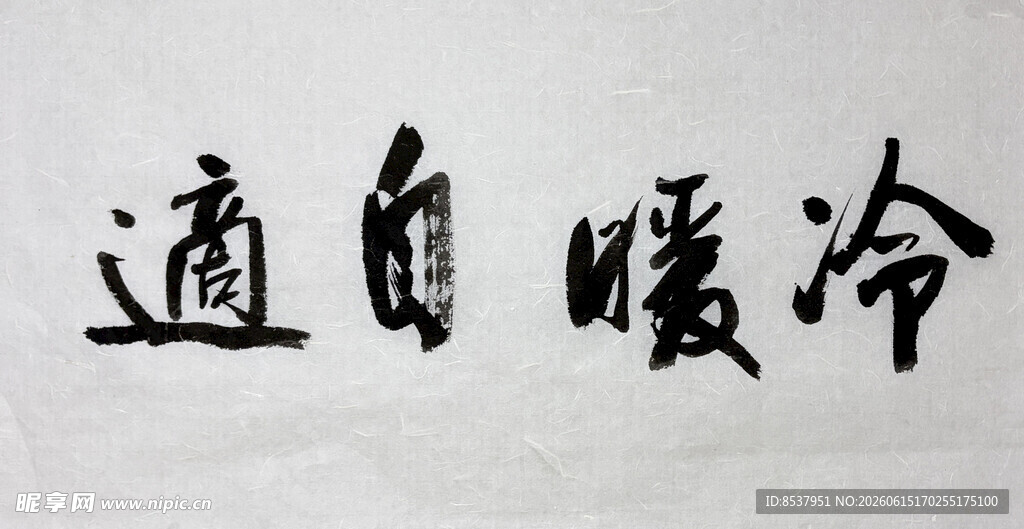 冷暖自適
昵享网 www.nipic.cn
ID:8537951 NO:20260615170255175100